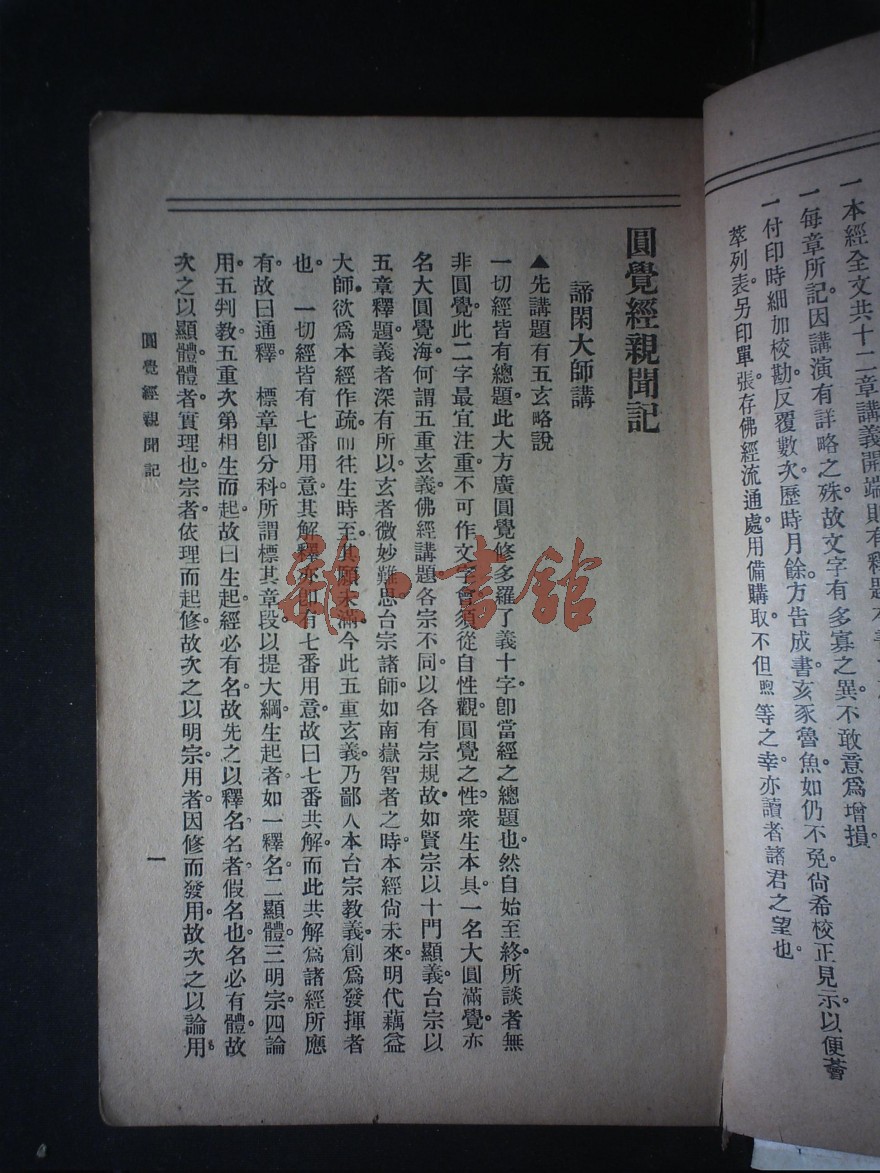 一本經全文共十二章講義開端則有釋題
一每章所記因講演有詳略之殊故文字有多寡之異。不敢意爲增損。
一付印時細加校勘。反覆數次。歷時月餘。方告成書。亥豕魯魚。如仍不免。尙希校正見示。以便薈
萃列表。另印單張。存佛經流通處。用備購取。不但煦等之幸。亦讀者諸君之望也。
圓覺經親聞記
諦閑大師講
▲先講題有五玄略說
一切經皆有總題。此大方廣圓覺修多羅了義十字。卽當經之總題也。然自始至終。所談者無
非圓覺。此二字最宜注重。不可作文字會。須從自性觀。圓覺之性。衆生本具。一名大圓滿覺。亦
名大圓覺海。何謂五重玄義。佛經講題。各宗不同。以各有宗規故。如賢宗以十門顯義。台宗以
五章釋題。義者深有所以。玄者微妙難思。台宗諸師。如南嶽智者之時。本經尙未來。明代藕益
大師。欲爲本經作疏。而往生時至。其願未滿。今此五重玄義。乃鄙人本台宗敎義。創爲發揮者
也。　一切經皆有七番用意。其解釋亦卽有七番用意。故曰七番共解。而此共解爲諸經所應
有。故曰通釋。　標章卽分科。所謂標其章段。以提大綱。生起者。如一釋名。二顯體。三明宗。四論
用。五判敎。五重次第相生而起。故曰生起。經必有名。故先之以釋名。名者假名也。名必有體。故
次之以顯體。體者。實理也。宗者。依理而起修。故次之以明宗。用者。因修而發用。故次之以論用。
圓覺經親聞記
一
雜·書館